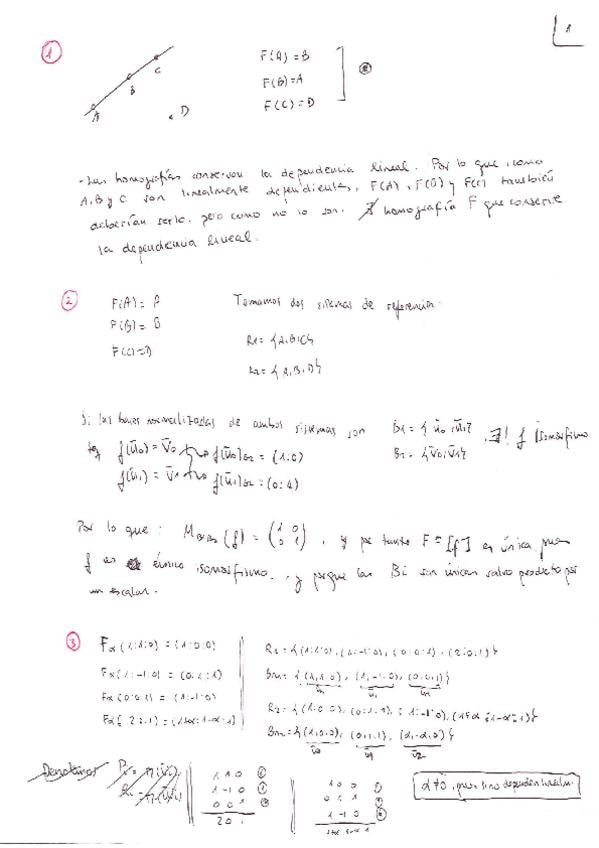 1
①
F(A) = B
F(B) = A
F(C) = D
A
B
C
D
- Las homografías conservan la dependencia lineal. Por lo que, como
A, B y C son linealmente dependientes, F(A), F(B) y F(C) también
deberían serlo, pero como no lo son, ∄ homografía F que conserve
la dependencia lineal.
②
F(A) = A
F(B) = B
F(C) = D
Tomamos dos sistemas de referencia:
R1 = {A, B; C}
R2 = {A, B, D}
Si las bases normalizadas de ambos sistemas son B1 = {ū0, ū1}, ∃! f isomorfismo
B2 = {v̄0, v̄1}
tq f(ū0) = v̄0 f(ū0)B2 = (1:0)
f(ū1) = v̄1 f(ū1)B2 = (0:1)
Por lo que: M (f) = (1 0 / 0 1), y por tanto F = [f] es única pues
f es único isomorfismo, y porque las Bi son únicas salvo producto por
un escalar.
③
Fα(1:1:0) = (1:0:0)
Fα(1:-1:0) = (0:1:1)
Fα(0:0:1) = (1:-1:0)
Fα(2:0:1) = (1+α:1-α:1)
R1 = {(1:1:0), (1:-1:0), (0:0:1), (2:0:1)}
BR1 = {(1,1,0), (1,-1,0), (0,0,1)}
ū0 ū1 ū2
R2 = {(1:0:0), (0:1:1), (1:-1:0), (1+α:1-α:1)}
BR2 = {(1,0,0), (0,1,1), (α,-α,0)}
v̄0 v̄1 v̄2
Denotamos
1 1 0
1 -1 0
0 0 1
1 0 0
0 1 1
1 -1 0
α≠0, pues si no dependen linealm.